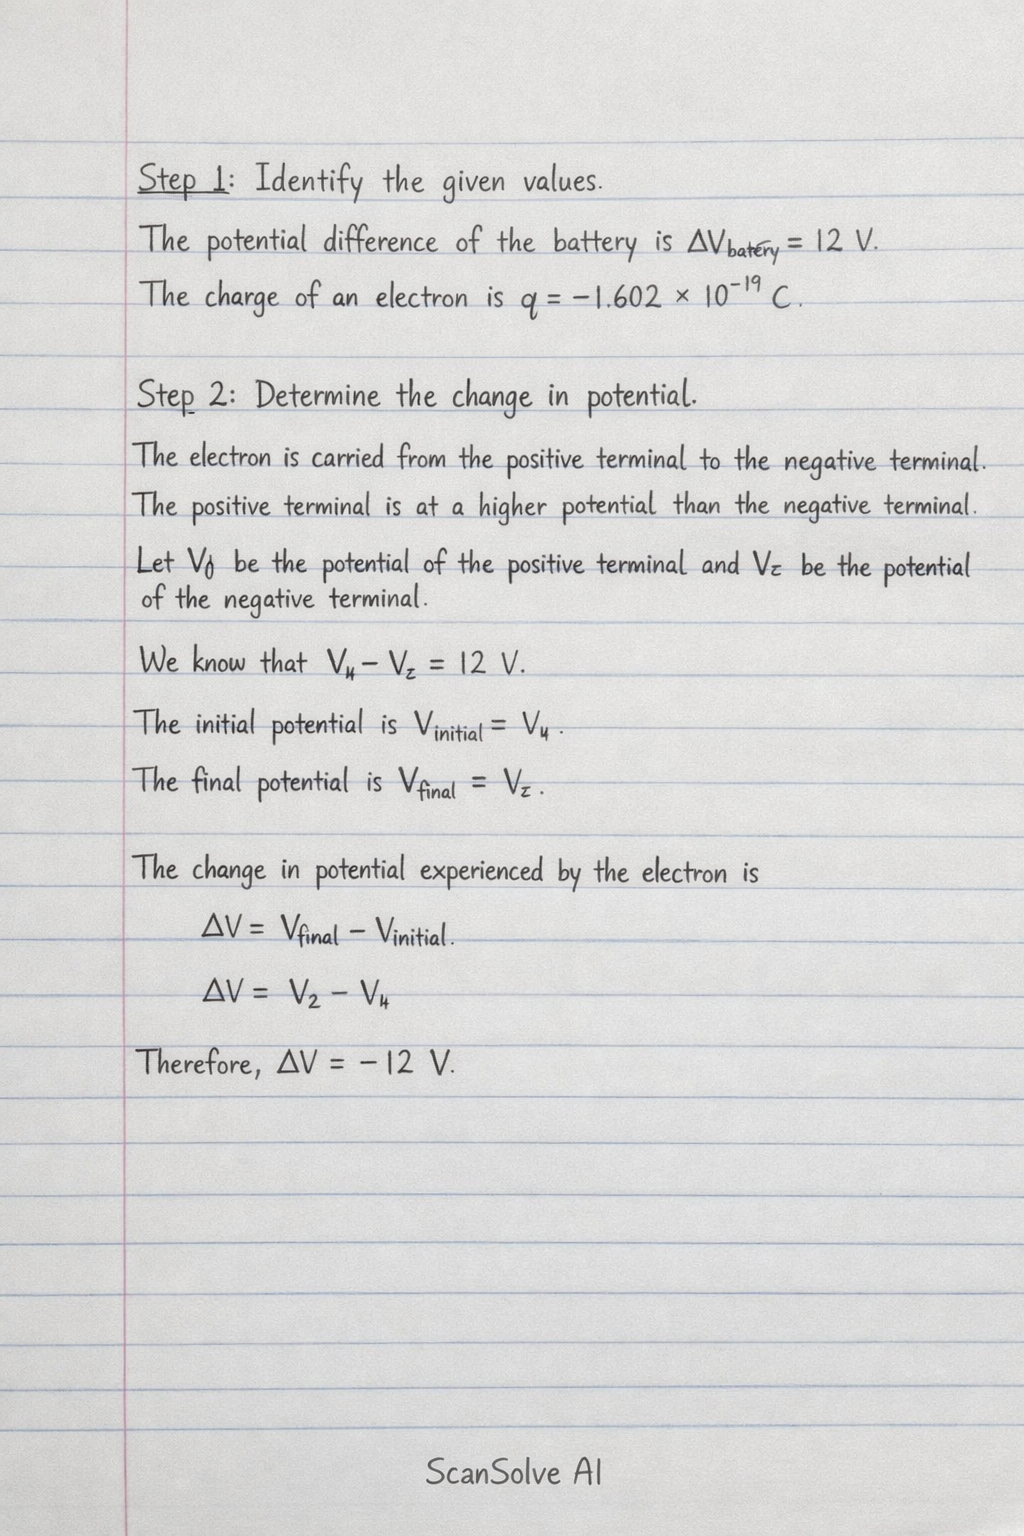 Step 1: Identify the given values.
The potential difference of the battery is ΔV_batery = 12 V.
The charge of an electron is q = −1.602 × 10⁻¹⁹ C.
Step 2: Determine the change in potential.
The electron is carried from the positive terminal to the negative terminal.
The positive terminal is at a higher potential than the negative terminal.
Let V be the potential of the positive terminal and V_z be the potential
of the negative terminal.
We know that V₄ − V_z = 12 V.
The initial potential is V_initial = V₄.
The final potential is V_final = V_z.
The change in potential experienced by the electron is
ΔV = V_final − V_initial.
ΔV = V₂ − V₄
Therefore, ΔV = −12 V.
ScanSolve AI